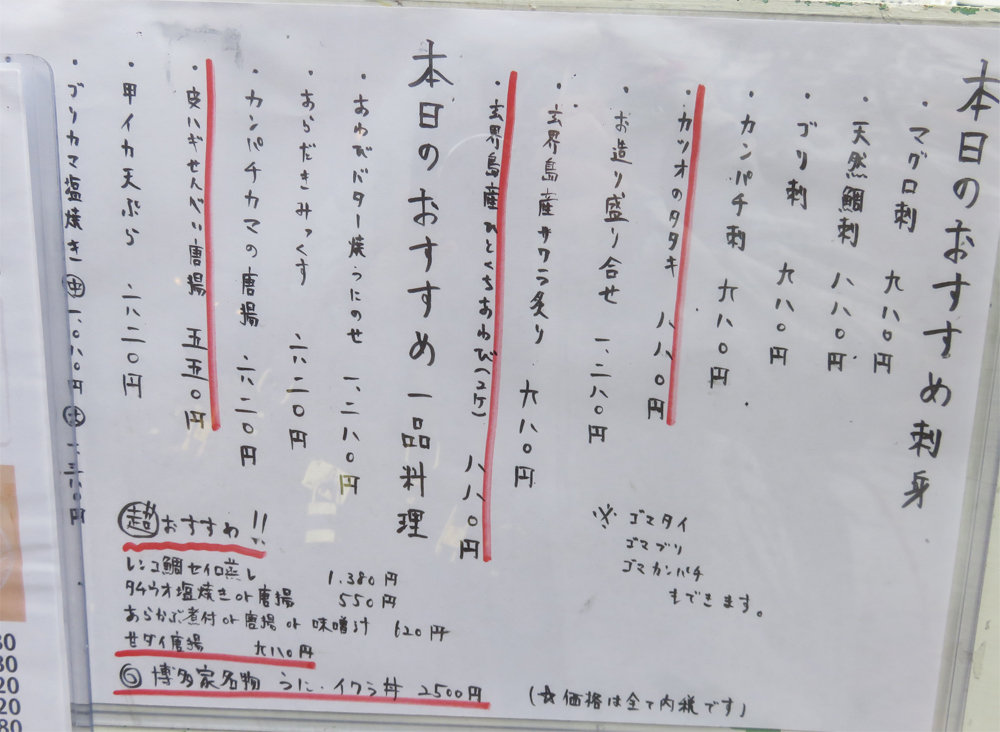 本日のおすすめ刺身
・マグロ刺 九八〇円
・天然鯛刺 八八〇円
・ブリ刺 九八〇円
・カンパチ刺 九八〇円
・カツオのタタキ 八八〇円
・お造り盛り合せ 一、二八〇円
・玄界島産サワラ炙り 九八〇円
・玄界島産ひとくちあわび(2ケ) 八八〇円
本日のおすすめ一品料理
・あわびバター焼うにのせ 一、二八〇円
・あらだきみっくす 六二〇円
・カンパチカマの唐揚 六二〇円
・皮ハギせんべい唐揚 五五〇円
・甲イカ天ぷら 六二〇円
・ブリカマ塩焼き ㊥一、〇八〇円 ㊤一、三八〇円
※ ゴマタイ
ゴマブリ
ゴマカンパチ
もできます。
超おすすめ!!
レンコ鯛セイロ蒸し 1.380円
タチウオ塩焼きor唐揚 550円
あらかぶ煮付or唐揚or味噌汁 620円
せダイ唐揚 九八〇円
◎博多家名物 うに・イクラ丼 2500円
(☆価格は全て内税です)
80
80
20
20
80